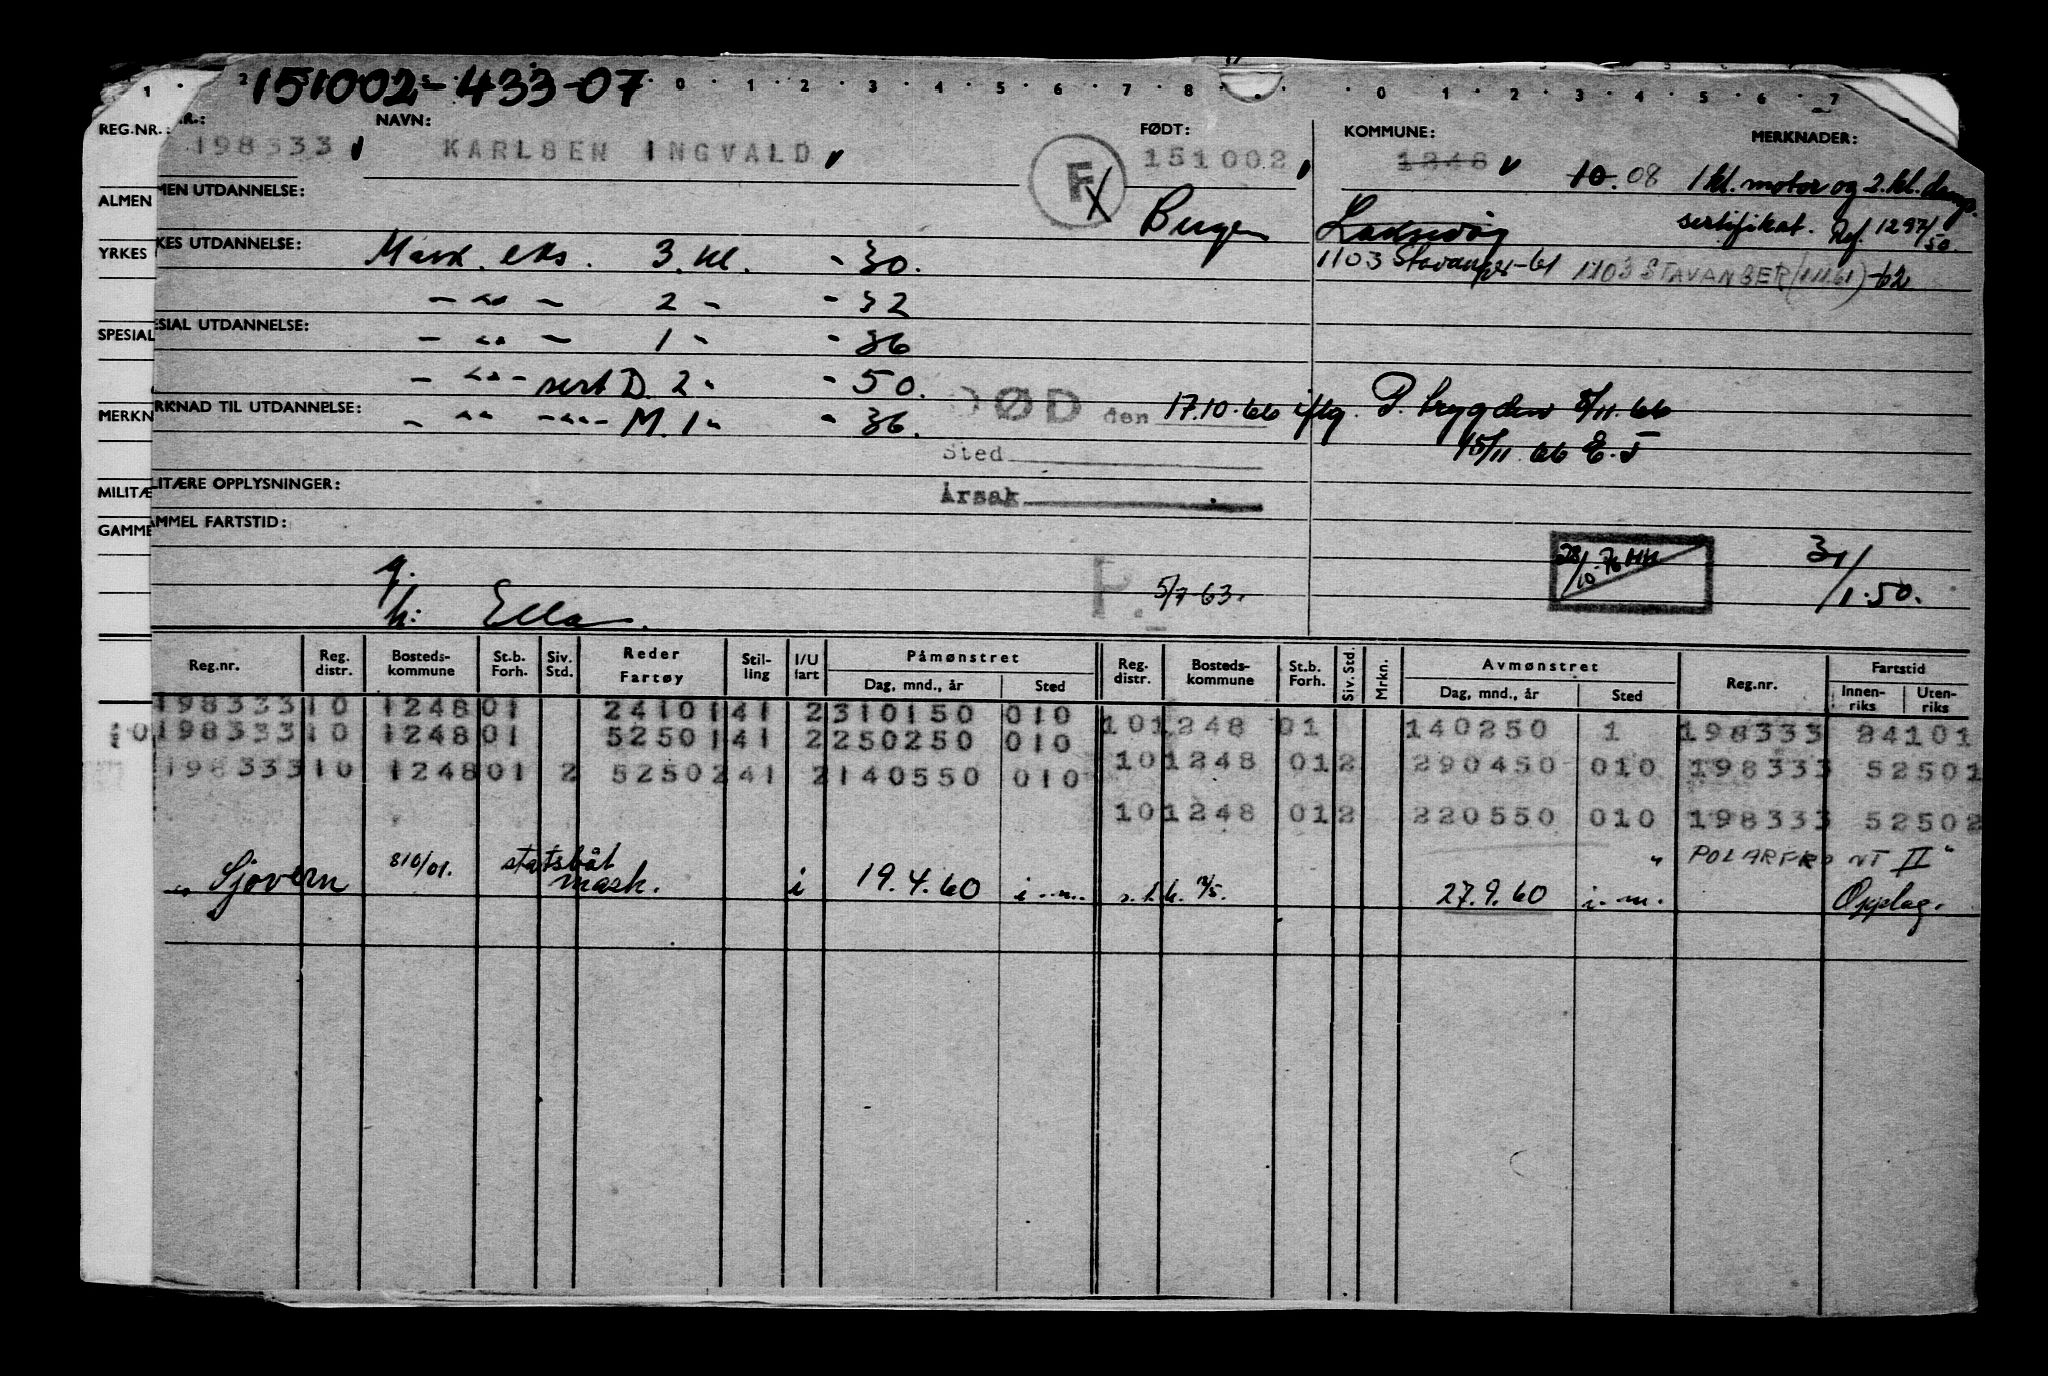 151002-433-07
REG.NR.: NAVN: FØDT: KOMMUNE: MERKNADER:
198333 KARLSEN INGVALD F 151002 1248 10. 08 1 kl. motor og 2. kl. damp.
ALMEN UTDANNELSE: Bergen Laksevåg sertifikat. Ref. 1297/50.
YRKES UTDANNELSE: Mask. eks. 3. kl. - 30. 1103 Stavanger-61 1103 STAVANGER (1/11.61) -62
- " - 2 - - 32
SPESIAL UTDANNELSE: - " - 1 - - 36
- " - sert D. 2 - - 50.
MERKNAD TIL UTDANNELSE: - " - - " - M. 1 - - 36. DØD den 17.10.66 iflg. P. trygden 8/11.66
Sted 15/11 66 E.J
MILITÆRE OPPLYSNINGER: Årsak
GAMMEL FARTSTID:
28/10-76 HH 31/1.50.
g.
h: Ella. P. 5/7-63.
Reg.nr. Reg. distr. Bosteds-kommune St.b. Forh. Siv. Std. Reder Fartøy Stil-ling I/U fart Påmønstret Reg. distr. Bosteds-kommune St.b. Forh. Siv. Std. Mrkn. Avmønstret Reg.nr. Fartstid
Dag, mnd., år Sted Dag, mnd., år Sted Innen-riks Uten-riks
198333 10 1248 01 24101 41 2 310150 010 10 1248 01 140250 1 198333 24101
198333 10 1248 01 52501 41 2 250250 010 10 1248 01 2 290450 010 198333 52501
198333 10 1248 01 2 52502 41 2 140550 010 10 1248 01 2 220550 010 198333 52502
" POLARFRONT II "
" Sjøvern 810/01. statsbåt mask. i 19.4.60 i.m. 27.9.60 i.m. Opplag.